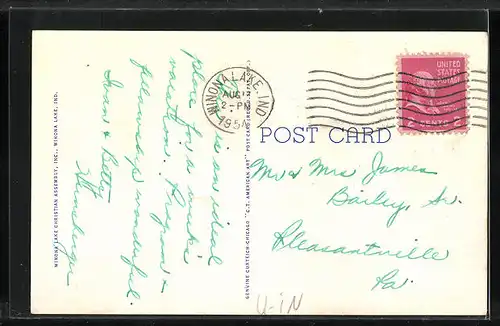 This is an ideal
place for a week's
vacation. Program &
fellowship wonderful.
Irvin & Betty
Shinaberger
WINONA LAKE, IND.
AUG
2-PM
1954
UNITED
STATES
POSTAGE
2 CENTS 2
POST CARD
Mr & Mrs James
Bailey, Sr.
Pleasantville
Pa.
WINONA LAKE CHRISTIAN ASSEMBLY, INC., WINONA LAKE, IND.
GENUINE CURTEICH-CHICAGO "C.T. AMERICAN ART" POST CARD
U-IN